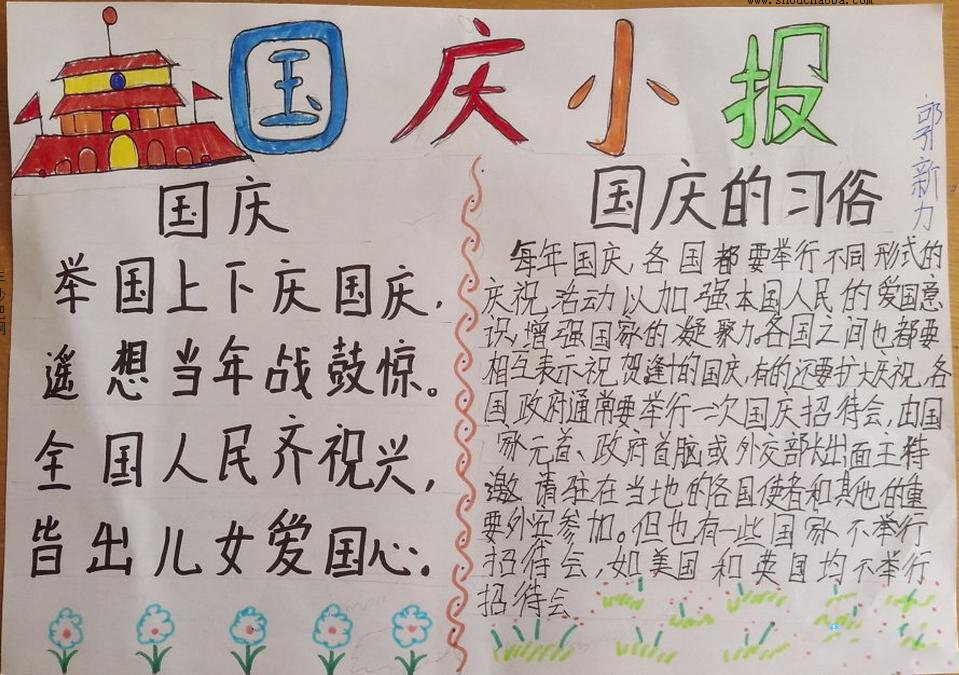 www.shouchaoba.com
国庆小报
郭新力
国庆
举国上下庆国庆，
遥想当年战鼓惊。
全国人民齐祝兴，
皆出儿女爱国心。
国庆的习俗
每年国庆，各国都要举行不同形式的
庆祝活动以加强本国人民的爱国意
识，增强国家的凝聚力。各国之间也都要
相互表示祝贺逢十的国庆，有的还要扩大庆祝，各
国政府通常要举行一次国庆招待会，由国
家元首、政府首脑或外交部长出面主持
邀请驻在当地的各国使者和其他的重
要外宾参加。但也有一些国家不举行
招待会，如美国和英国均不举行
招待会